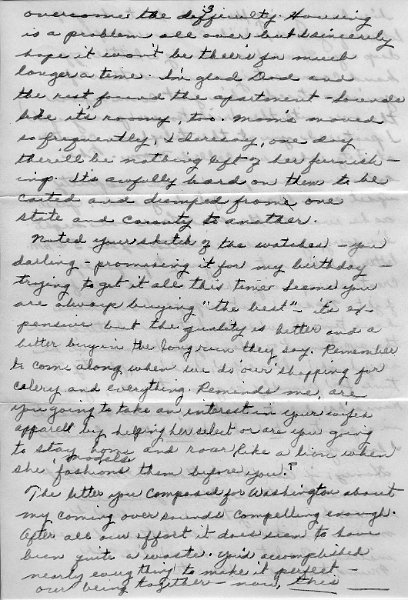 3
overcome the difficulty. Housing
is a problem all over but I sincerely
hope it won't be their's for much
longer a time. I'm glad Dad and
the rest found the apartment - sounds
like it's roomy, too. Mom's moved
so frequently, I daresay, one day
there'll be nothing left of her furnish-
ing. It's awfully hard on them to be
carted and dumped from one
state and county to another.
Noted your sketch of the watches - you
darling - promising it for my birthday -
trying to get it all this time. Seems you
are always buying "the best" - it's ex-
pensive but the quality is better and a
better buy in the long run they say. Remember
to come along when we do our shopping for
colery and everything. Reminds me, are
you going to take an interest in your wife's
apparell by helping her select or are you going
to stay home and roar like a lion when
she models
fashions them before you?
The letter you composed for Washington about
my coming over sounds compelling enough.
After all our effort it does seem to have
been quite a waste. You've accomplished
nearly everything to make it perfect -
our being together - now, this